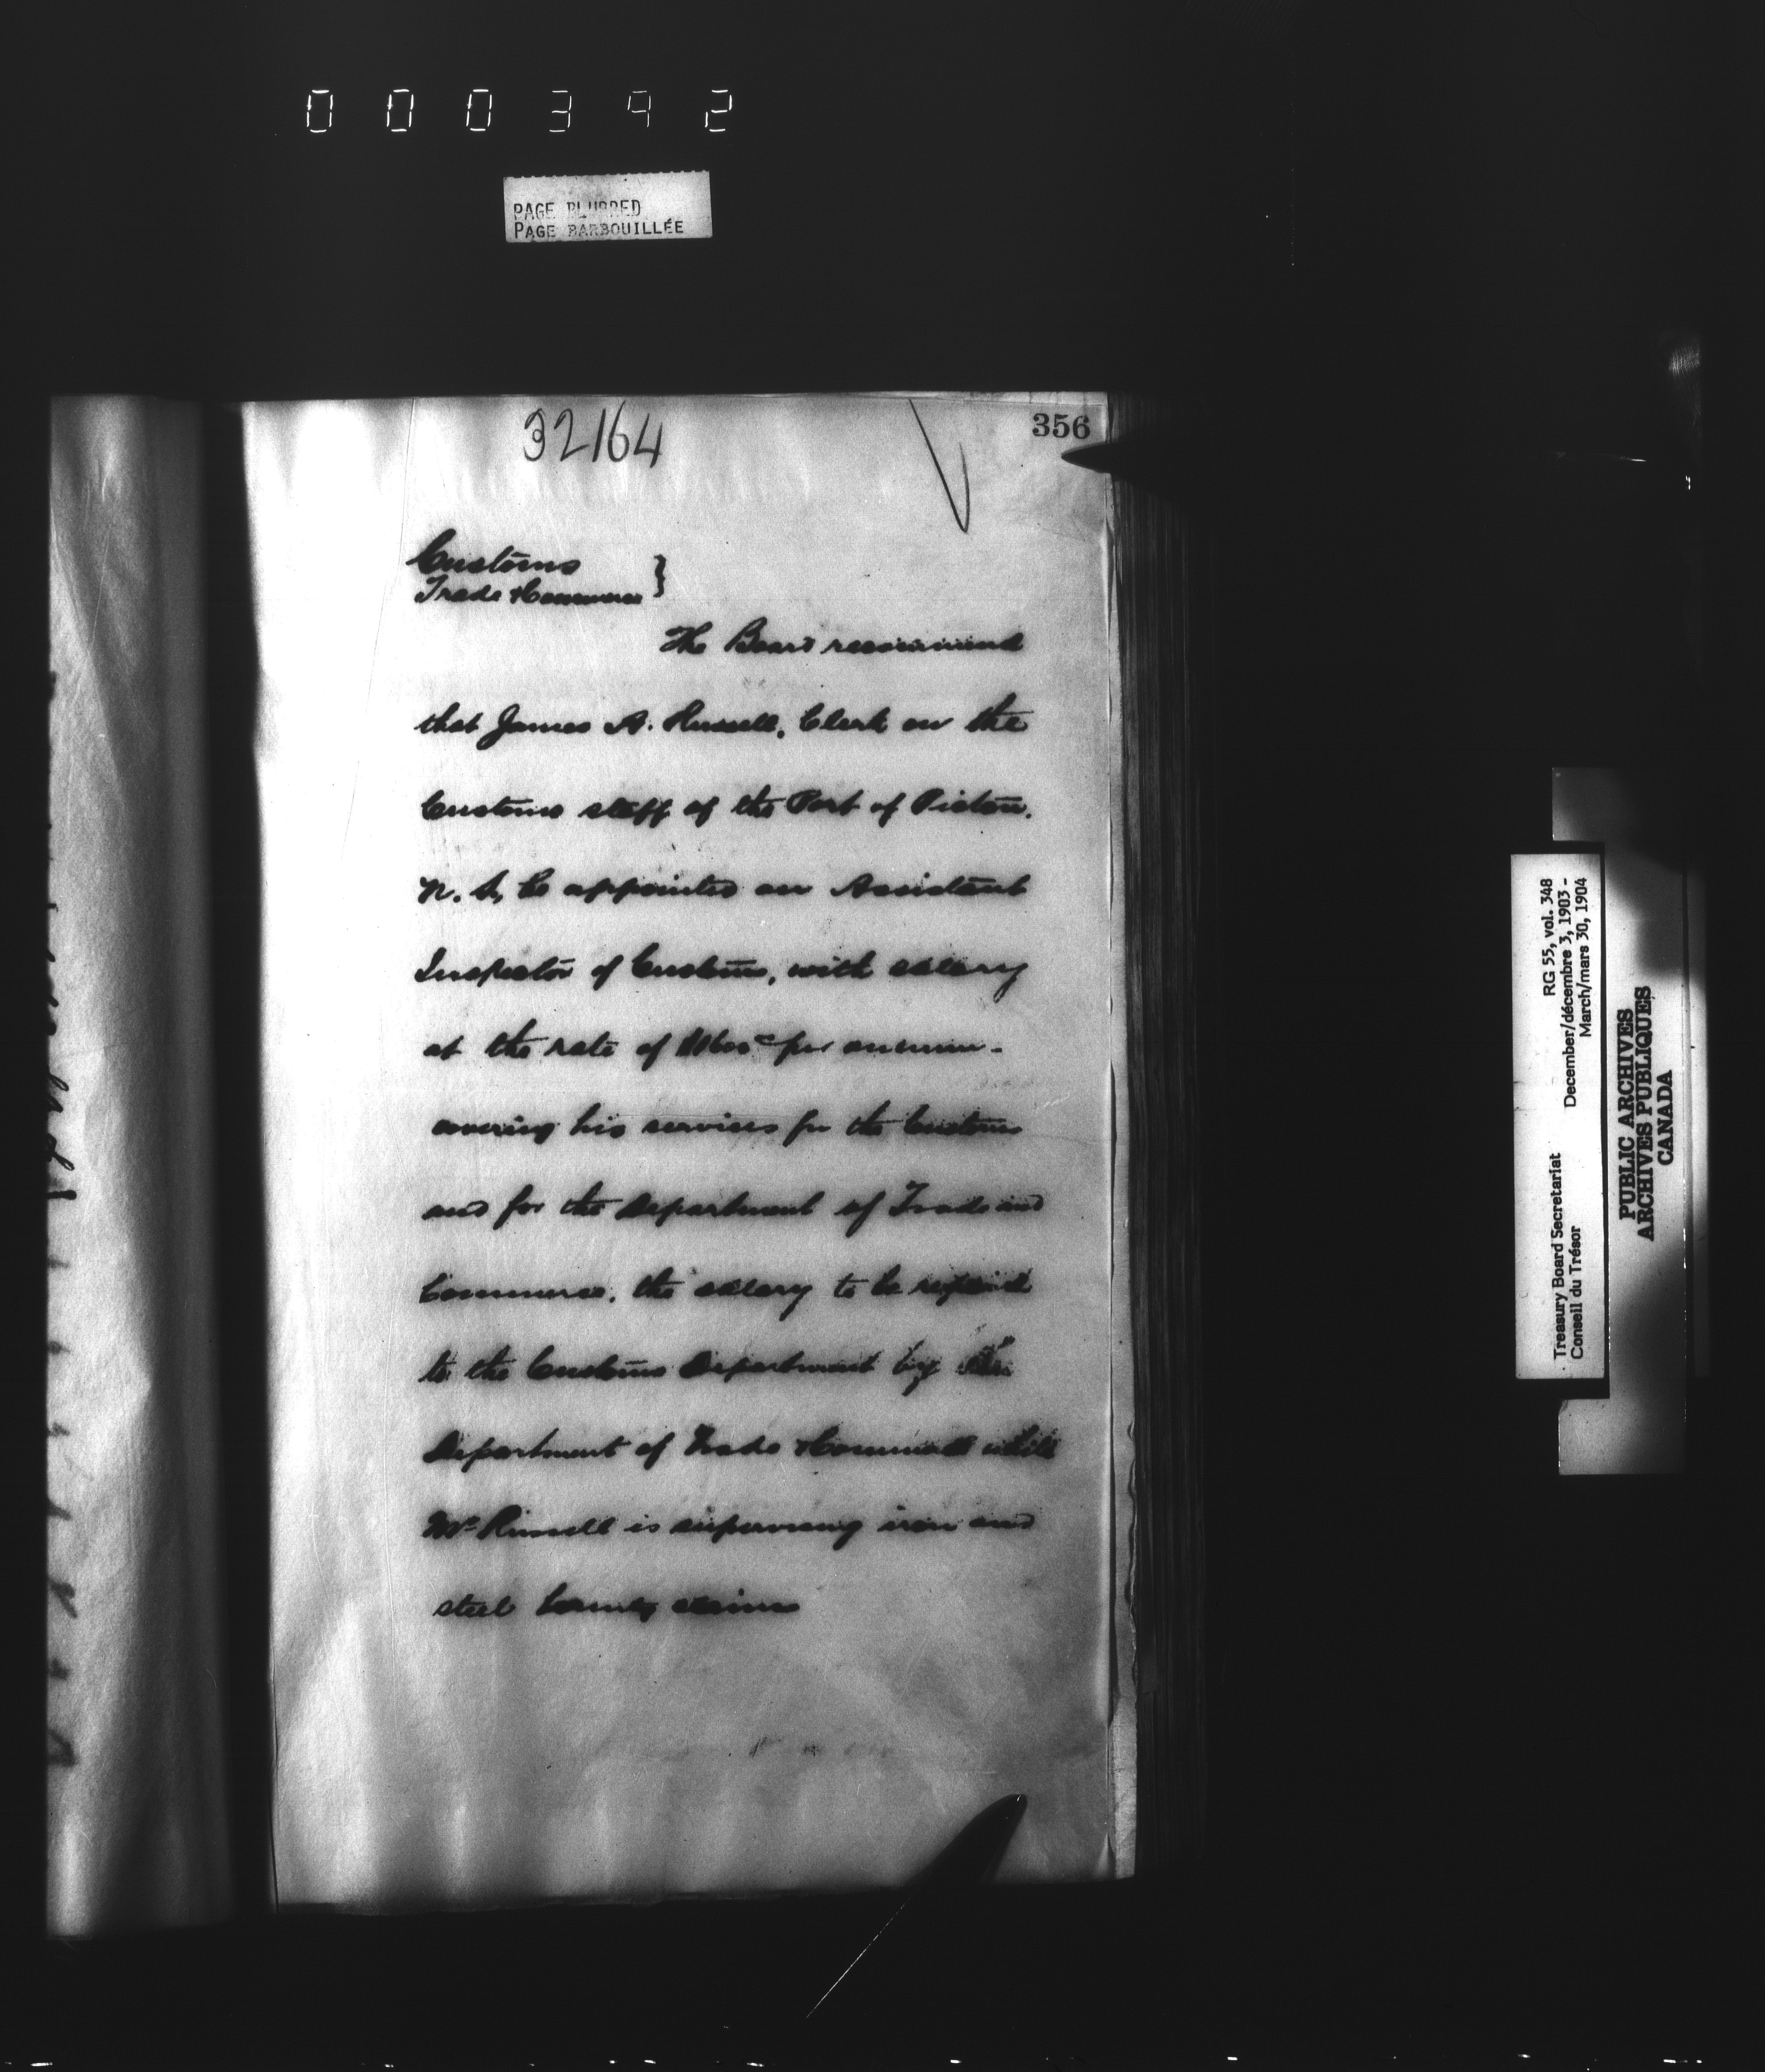 000392
PAGE BLURRED
PAGE BARBOUILLÉE
356
32164
Customs
Trade & Commerce }
The Board recommend
that James A. Russell, Clerk on the
Customs staff of the Port of Pictou,
N.S, be appointed an Assistant
Inspector of Customs, with salary
at the rate of per annum -
covering his services for the Customs
and for the Department of Trade and
Commerce, the salary to be repaid
to the Customs Department by the
Department of Trade & Commerce while
Mr Russell is supervising iron and
steel bounty claims
Treasury Board Secretariat RG 55, vol. 348
Conseil du Trésor December/décembre 3, 1903 -
March/mars 30, 1904
PUBLIC ARCHIVES
ARCHIVES PUBLIQUES
CANADA